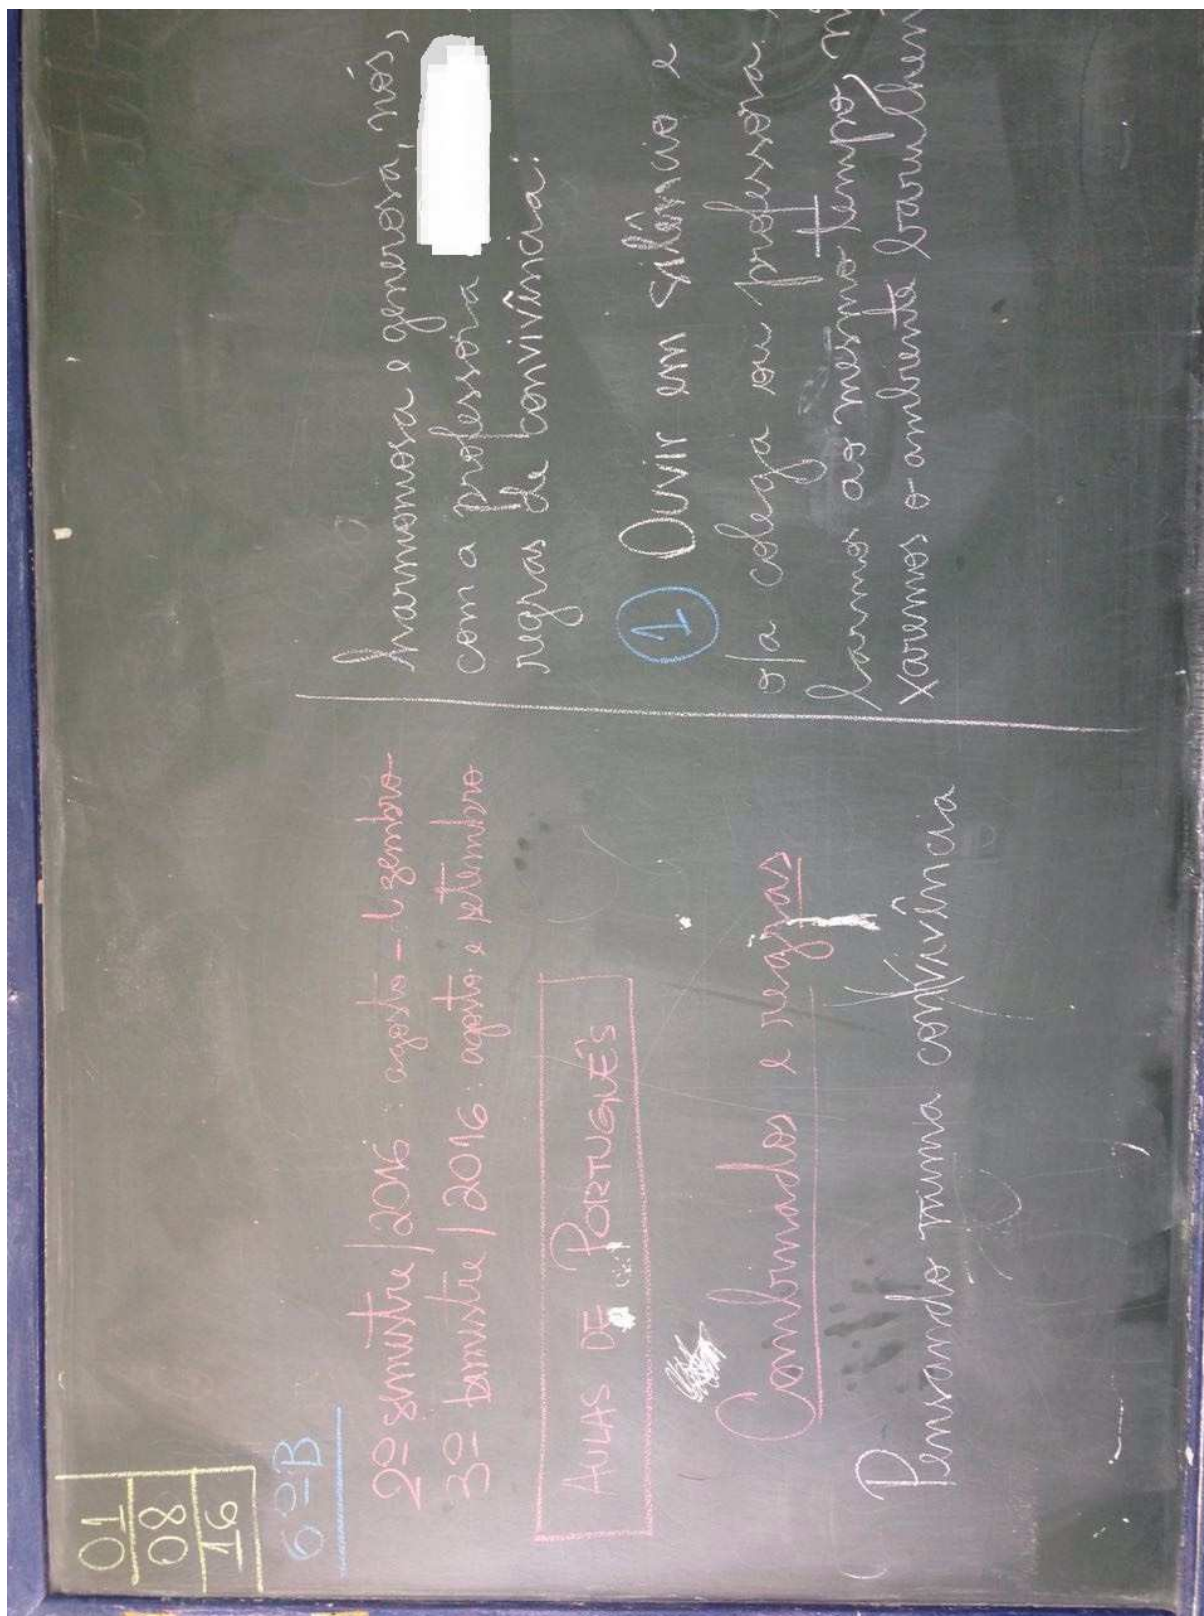 01
08
16
6º B
2º semestre/2016: agosto - dezembro
3º bimestre/2016: agosto e setembro
AULAS DE PORTUGUÊS
Combinados e regras
Pensando numa convivência
harmoniosa e generosa, nós,
com a professora
regras de convivência:
1 Ouvir em silêncio e
o/a colega ou professora.
larmos ao mesmo tempo
xaremos o ambiente barulhen